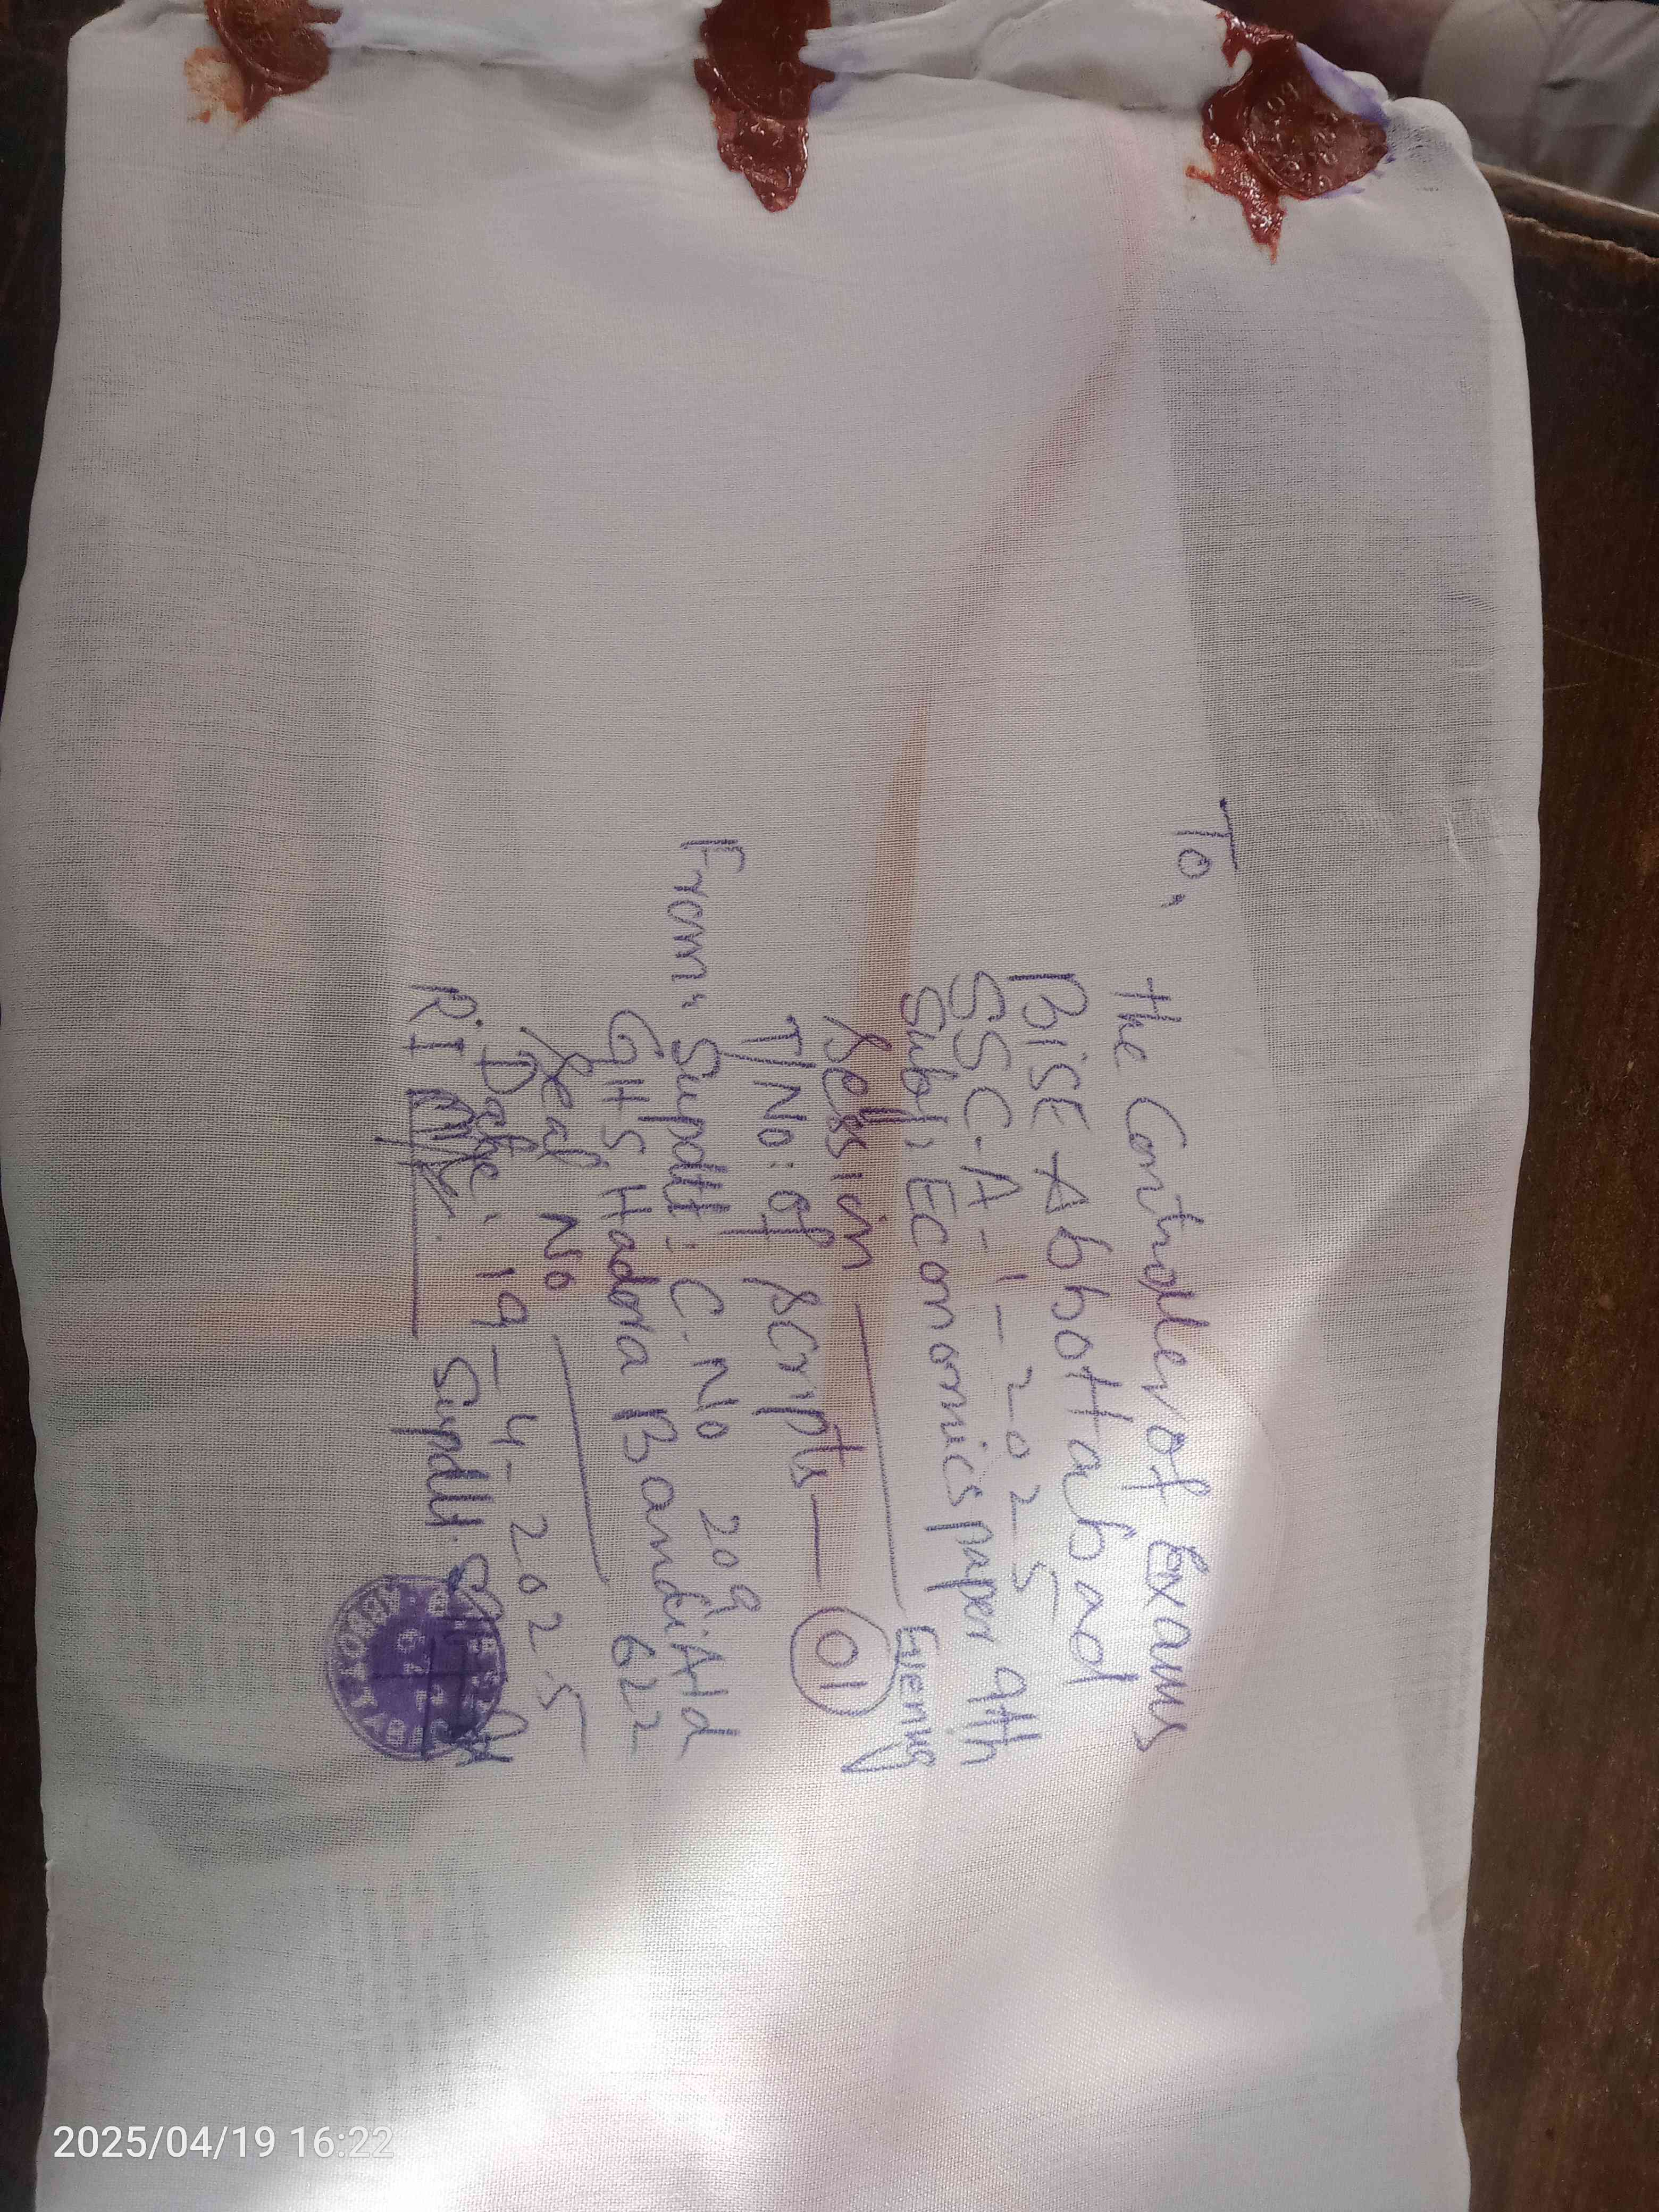 To,
the Controller of Exams
BISE Abbottabad
SSC-A-1-2025
Subj, Economics paper 9th
Session — Evening
T/No: of scripts — 01
From: Supdtt: C.No 209
GHS Hadora Bandi Atd
Seal No — 622
Date: 19-4-2025
R.I Supdtt.
2025/04/19 16:22